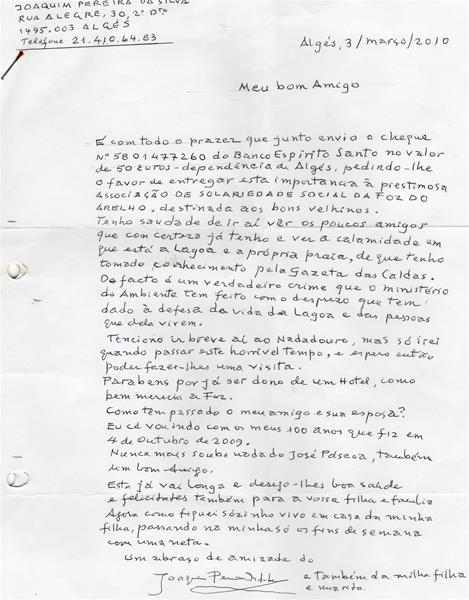 JOAQUIM PEREIRA DA SILVA
RUA ALEGRE, 30, 2º Dtº
1495.003 ALGÉS
Telefone 21.410.64.83
Algés, 3/março/2010
Meu bom Amigo
É com todo o prazer que junto envio o cheque
Nº 5801477260 do Banco Espírito Santo no valor
de 50 euros - dependência de Algés, pedindo-lhe
o favor de entregar esta importância à prestimosa
ASSOCIAÇÃO DE SOLARIEDADE SOCIAL DA FOZ DO
ARELHO, destinada aos bons velhinos.
Tenho saudade de ir aí vêr os poucos amigos
que com certeza já tenho e ver a calamidade em
que está a Lagoa e a própria praia, de que tenho
tomado conhecimento pela Gazeta das Caldas.
De facto é um verdadeiro crime que o ministério
do Ambiente tem feito com o desprezo que tem
dado à defesa da vida da Lagoa e das pessoas
que dela vivem.
Tenciono ir breve aí ao Nadadouro, mas só irei
quando passar este horrível tempo, e espero então
poder fazer-lhes uma visita.
Parabens por já ser dono de um Hotel, como
bem merecia a Foz.
Como têm passado o meu amigo e sua esposa?
Eu cá vou indo com os meus 100 anos que fiz em
4 de Outubro de 2009.
Nunca mais soube nada do José Páscoa, também
um bom Amigo.
Esta já vai longa e desejo-lhes boa saúde
e felicidades também para a vossa filha e família
Agora como fiquei sózinho vivo em casa da minha
filha, passando na minha só os fins de semana
com uma neta.
Um abraço de amizade do
Joaquim e também da milha filha
e marido.